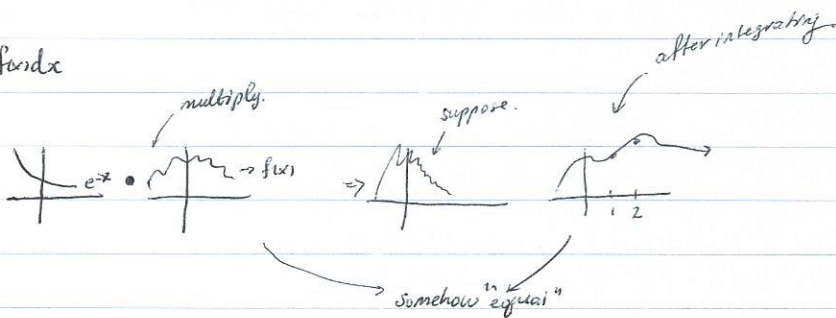 after integrating.
f(x)dx
multiply.
suppose.
e^-x • → f(x) ⇒
1 2
somehow "equal"